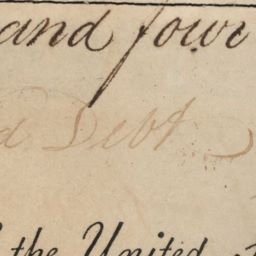 and four
d Debt
the United